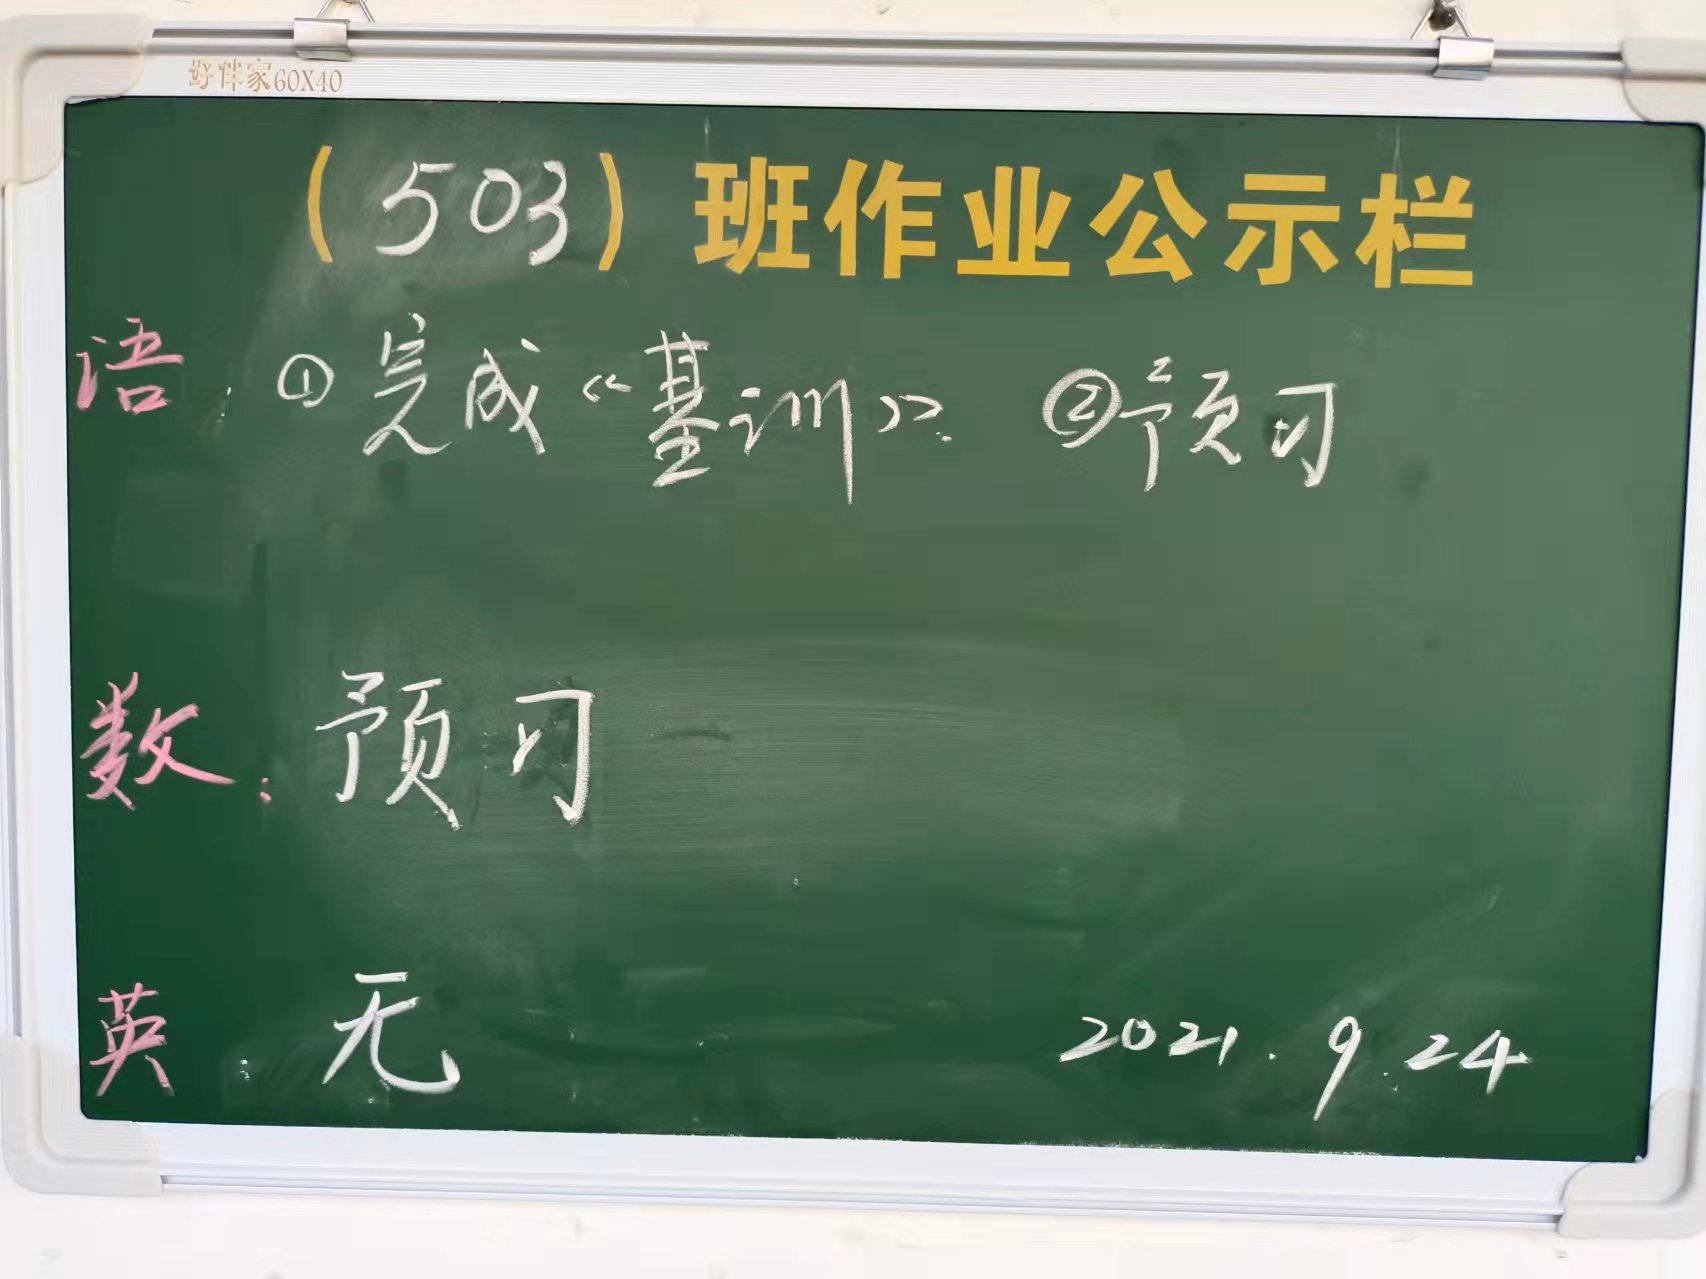 好伴家60X40
（503）班作业公示栏
语：①完成《基训》. ②预习
数：预习
英：无
2021.9.24